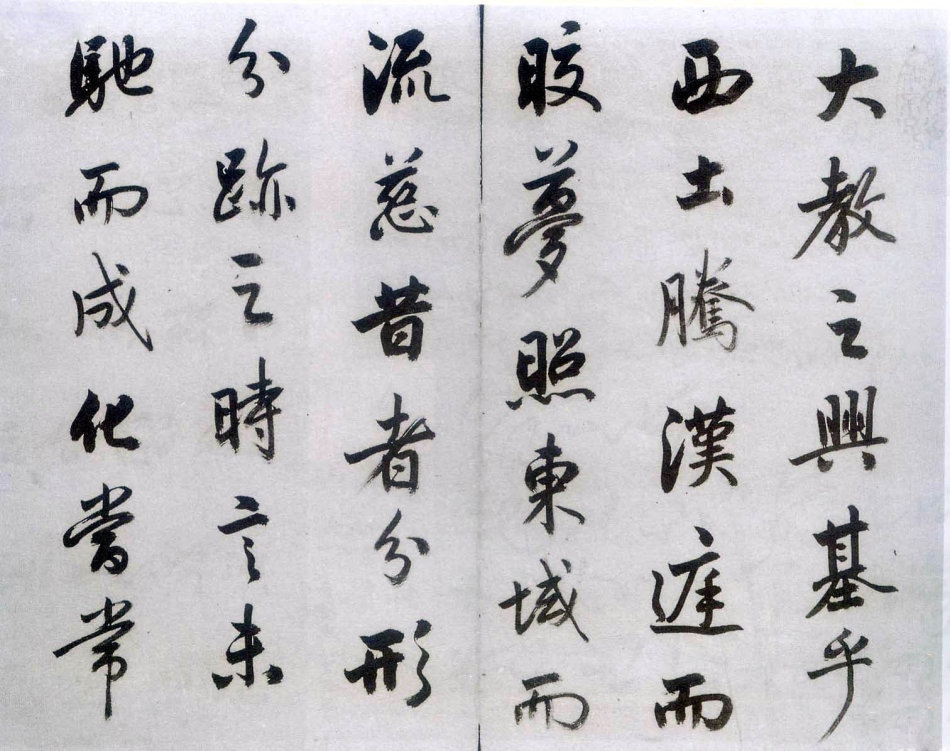 大教之興基乎
西土騰漢庭而
皎夢照東域而
流慈昔者分形
分跡之時言未
馳而成化當常